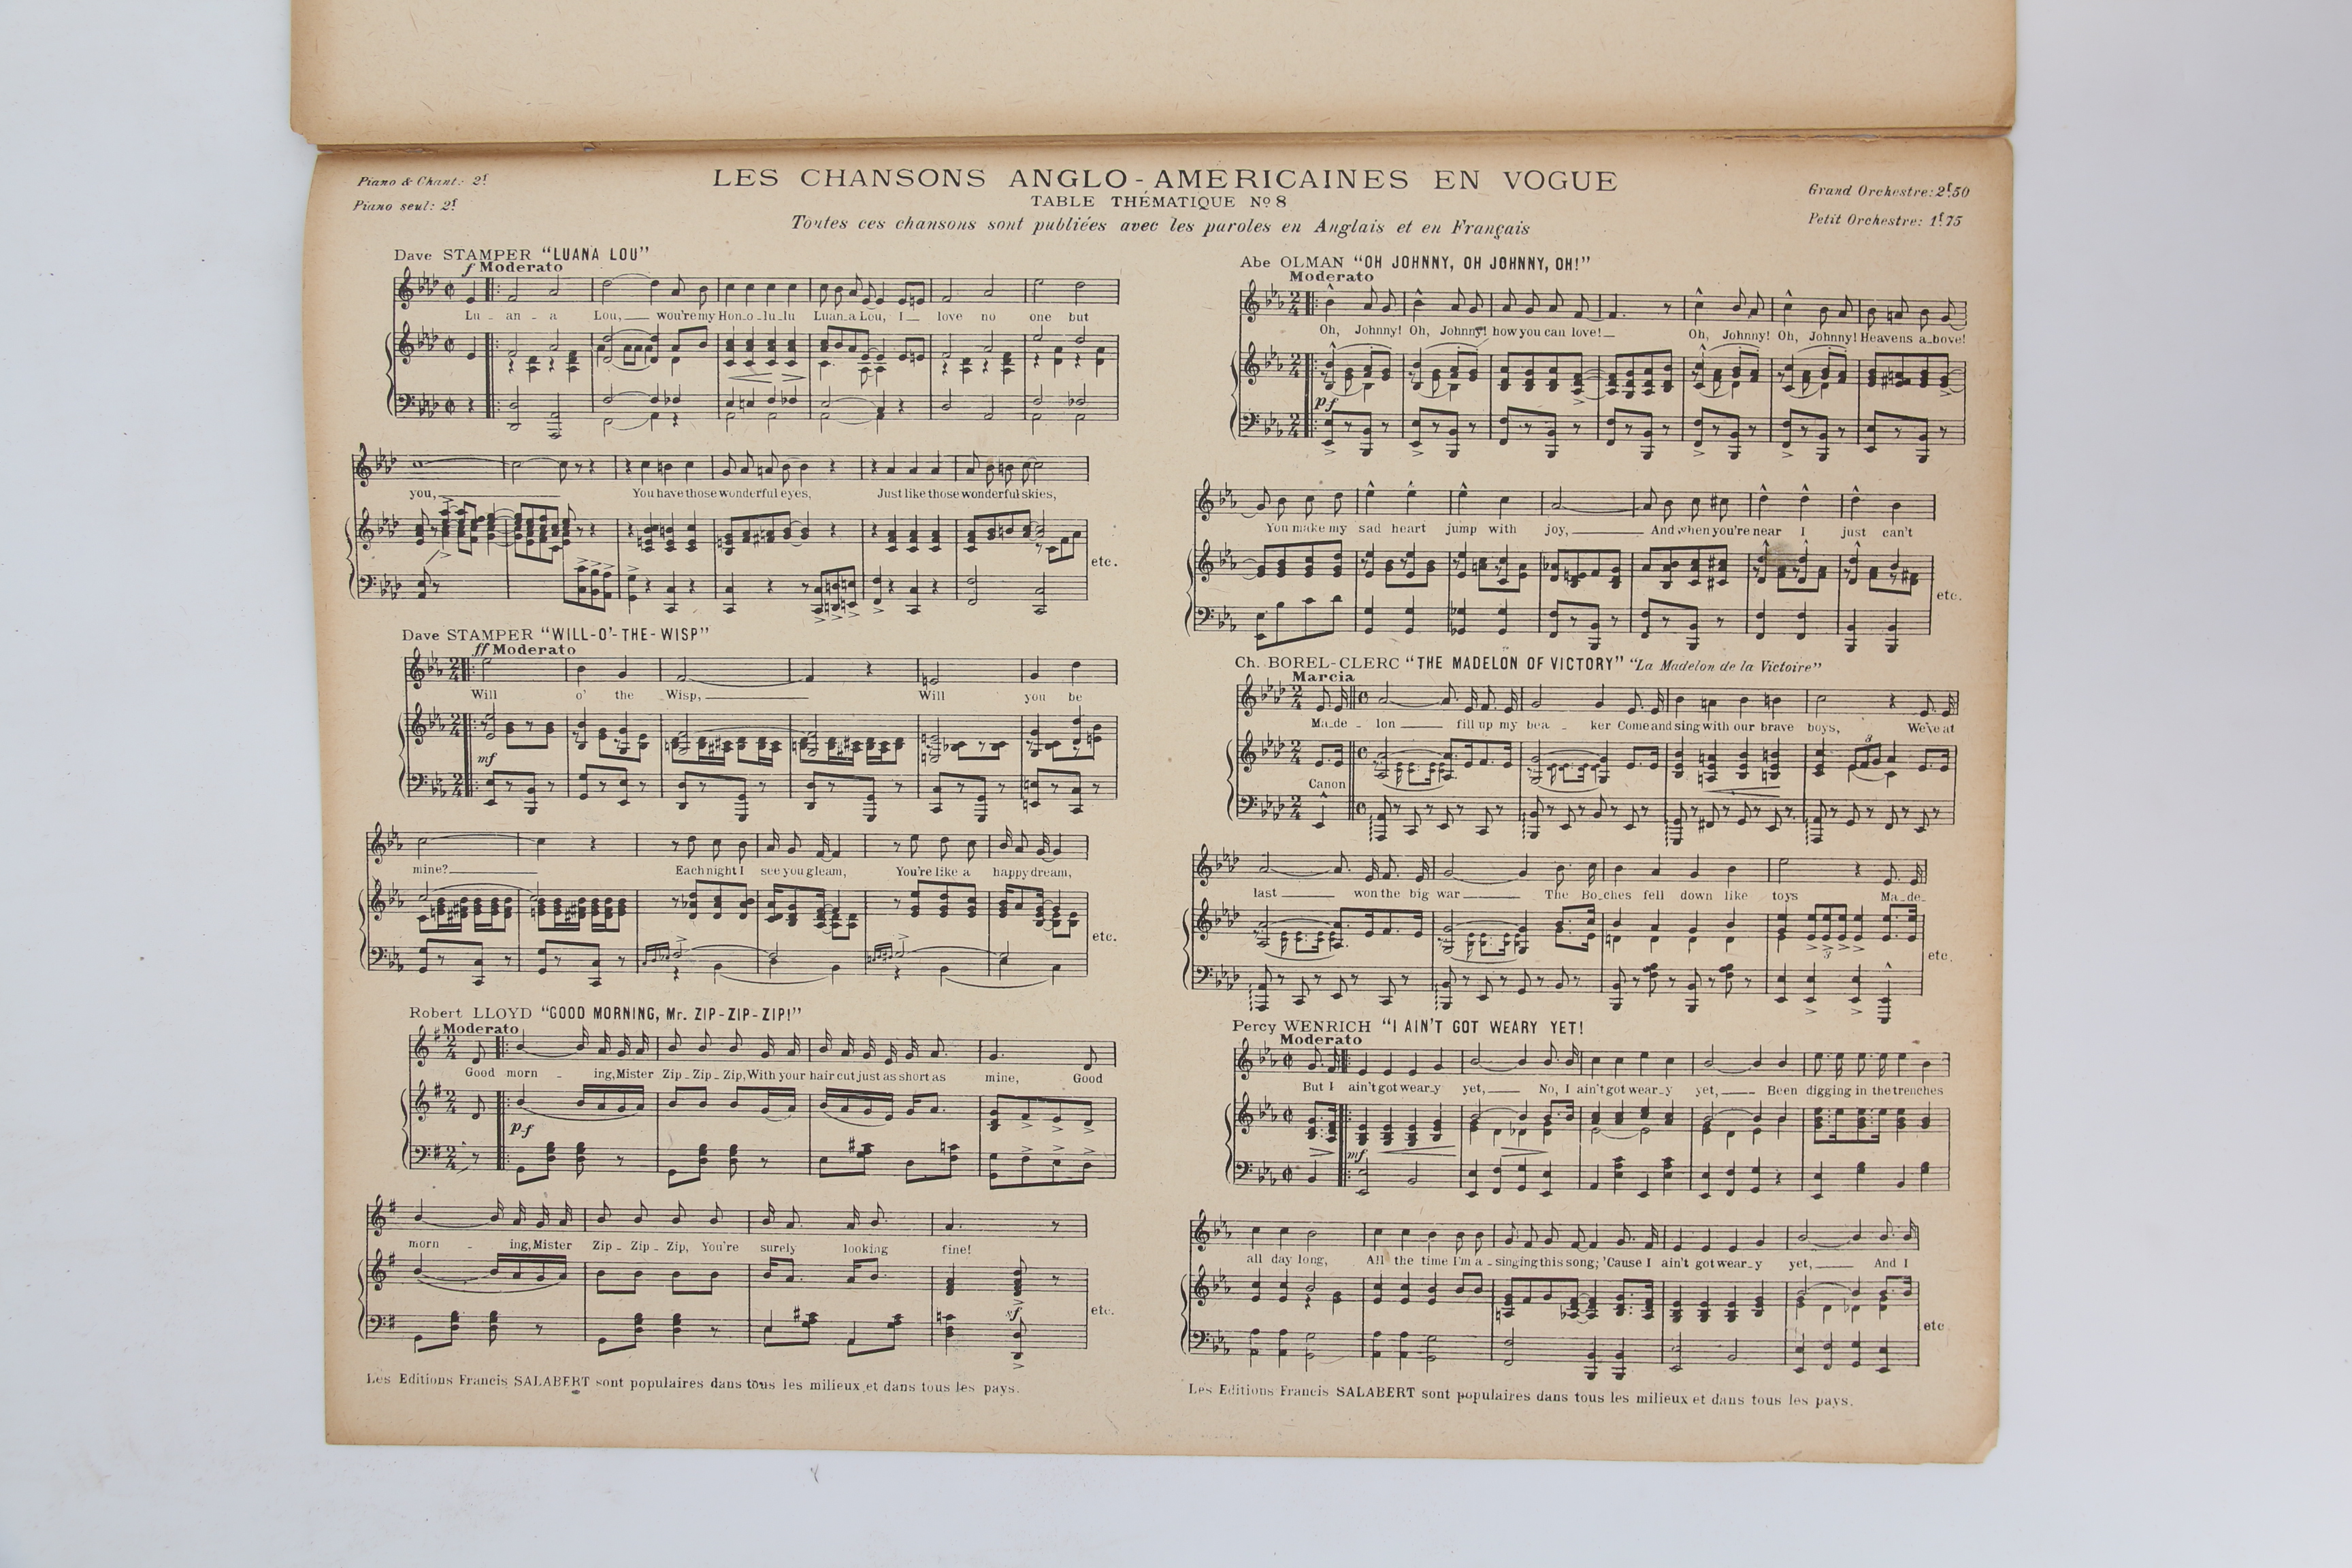 Piano & Chant: 2f
Piano seul: 2f
LES CHANSONS ANGLO-AMERICAINES EN VOGUE
TABLE THÉMATIQUE No 8
Toutes ces chansons sont publiées avec les paroles en Anglais et en Français
Grand Orchestre: 2f50
Petit Orchestre: 1f75
Dave STAMPER "LUANA LOU"
f Moderato
Lu - an - a Lou, wou're my Hon-o-lu-lu Luan-a Lou, I love no one but
you, You have those wonderful eyes, Just like those wonderful skies,
etc.
Dave STAMPER "WILL-O'-THE-WISP"
ff Moderato
Will o' the Wisp, Will you be
mf
mine? Each night I see you gleam, You're like a happy dream,
etc.
Robert LLOYD "GOOD MORNING, Mr. ZIP-ZIP-ZIP!"
Moderato
Good morn - ing, Mister Zip - Zip - Zip, With your hair cut just as short as mine, Good
p-f
morn - ing, Mister Zip - Zip - Zip, You're surely looking fine!
sf
etc.
Les Editions Francis SALABERT sont populaires dans tous les milieux et dans tous les pays.
Abe OLMAN "OH JOHNNY, OH JOHNNY, OH!"
Moderato
Oh, Johnny! Oh, Johnny! how you can love! Oh, Johnny! Oh, Johnny! Heavens a-bove!
p f
You make my sad heart jump with joy, And when you're near I just can't
etc.
Ch. BOREL-CLERC "THE MADELON OF VICTORY" "La Madelon de la Victoire"
Marcia
Ma-de - lon fill up my bea - ker Come and sing with our brave boys, We've at
3
Canon
last won the big war The Bo-ches fell down like toys Ma-de-
3
etc.
Percy WENRICH "I AIN'T GOT WEARY YET!
Moderato
But I ain't got wear-y yet, No, I ain't got wear-y yet, Been digging in the trenches
mf
all day long, All the time I'm a - singing this song; 'Cause I ain't got wear-y yet, And I
etc
Les Editions Francis SALABERT sont populaires dans tous les milieux et dans tous les pays.